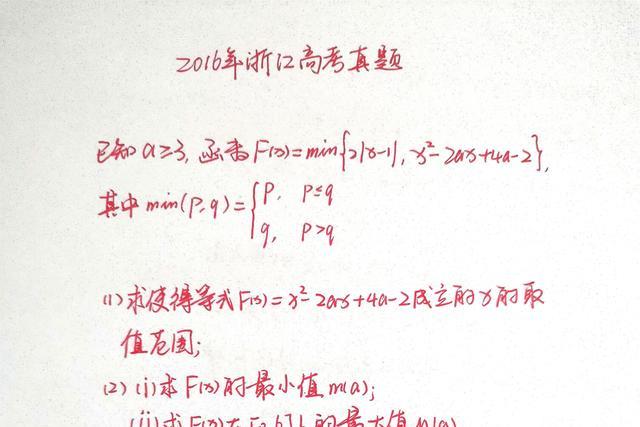 2016年浙江高考真题
已知a≥3, 函数F(x)=min{2|x-1|, x²-2ax+4a-2},
其中min(p,q)={p, p≤q
q, p>q
(1)求使得等式F(x)=x²-2ax+4a-2成立的x的取
值范围;
(2)(i)求F(x)的最小值m(a);
(ii)求F(x)在[0,6]上的最大值M(a)